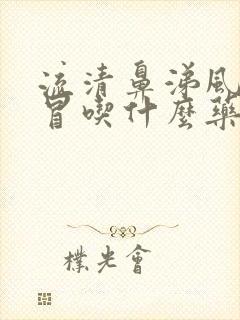 流清鼻涕風
冒喫什麼藥
樸光會